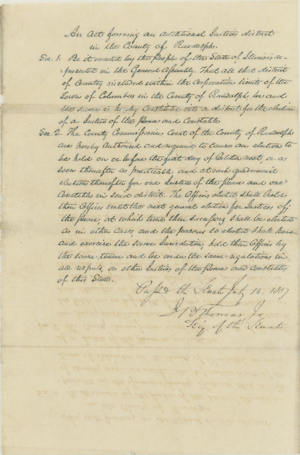 An Act forming an additional Justices district
in the County of Randolph.
Sec. 1. Be it enacted by the people of the State of Illinois re-
presented in the General Assembly That all the district
of Country included within the Corporation limits of the
Town of Columbus in the County of Randolph be and
the same is hereby Constituted into a district for the election
of a Justice of the peace and Constable.
Sec 2. The County Commissioners Court of the County of Randolph
are hereby Authorised and required to cause an election to
be held on or before the first day of October next, or as
soon thereafter as practicable and at each quadrennial
election thereafter for one Justice of the peace and one
Constable in said district. The Officers elected shall hold
their Offices until the next general election for Justices of
the peace, at which time their successors shall be elected
as in other cases, and the persons so elected shall have
and exercise the same Jurisdiction, hold their Offices by
the same tenure and be under the same regulations in
all respects, as other Justices of the peace and Constables
of this State.
Passed the Senate July 18. 1837
J B Thomas Jr
Secy of the Senate